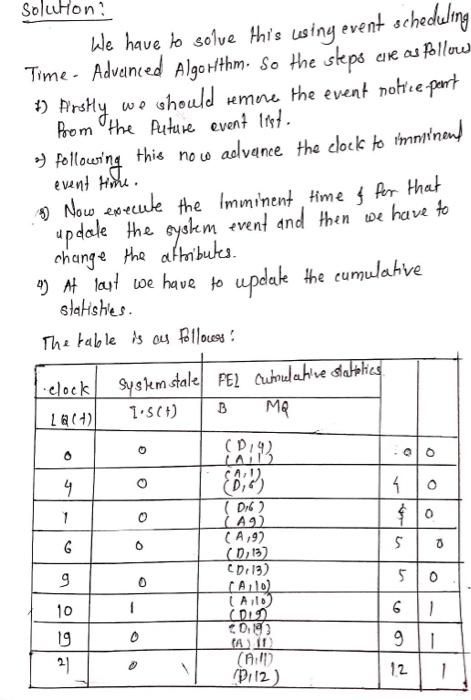 Solution:
We have to solve this using event scheduling
Time - Advanced Algorithm. So the steps are as follows
1) Firstly we should remove the event notice-part
from the future event list.
2) following this now advance the clock to imminent
event time.
3) Now execute the Imminent time & for that
update the system event and then we have to
change the attributes.
4) At last we have to update the cumulative
statistics.
The table is as follows:
clock System state FEL Cumulative statistics
LQ(t) I.S(t) B MQ
0 0 (D,4) (A,1) 0 0
4 0 (A,1) (D,6) 4 0
7 0 (D,6) (A,9) 0
6 0 (A,9) (D,13) 5 0
9 0 (D,13) (A,10) 5 0
10 1 (A,10) (D,9) 6 1
19 0 (D,19) (A,11) 9 1
21 0 (A,11) (D,12) 12 1